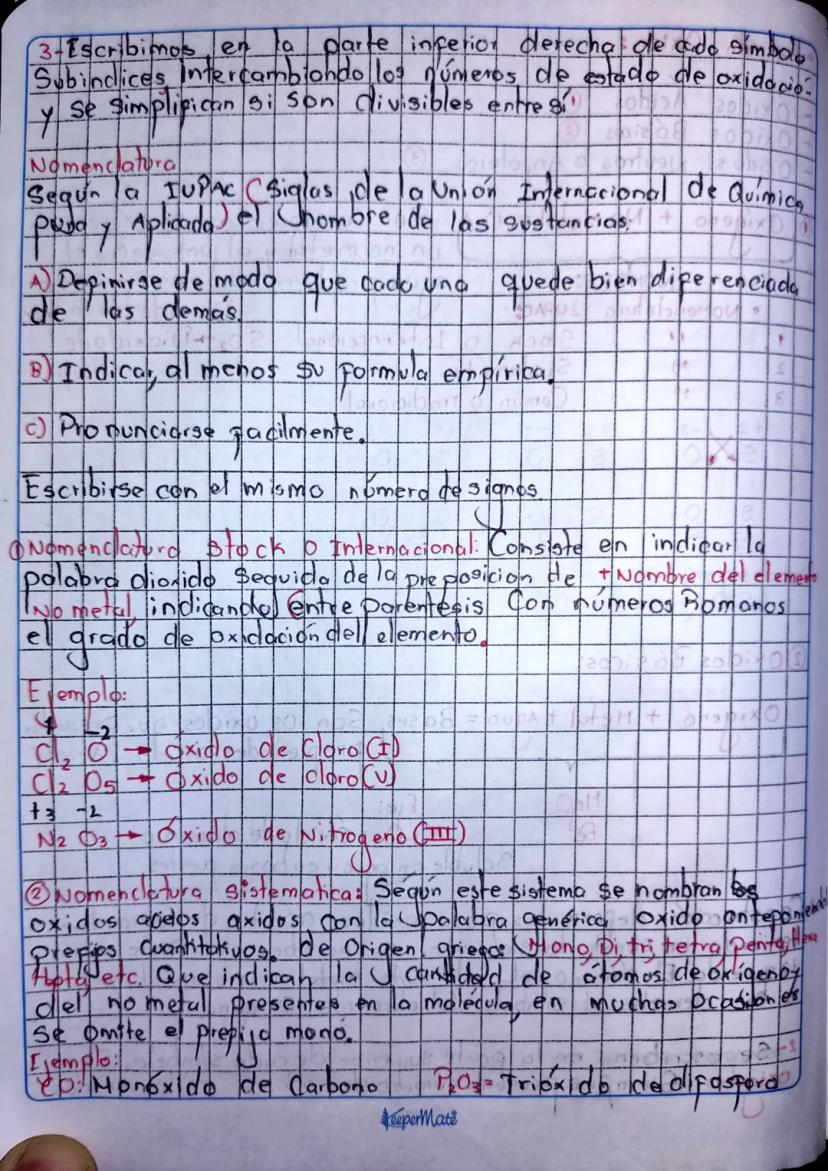 3- Escribimos en la parte inferior derecha de cada símbolo
Subíndices Intercambiando los números de estado de oxidació-
y se simplifican si son divisibles entre sí
Nomenclatura
Según la IUPAC (Siglas de la Unión Internacional de Química
pura y Aplicada) el nombre de las sustancias:
A) Definirse de modo que cada una quede bien diferenciada
de las demás.
B) Indicar, al menos su formula empírica.
C) Pronunciarse facilmente.
Escribirse con el mismo número de signos
① Nomenclatura Stock o Internacional: Consiste en indicar la
palabra dioxido seguida de la preposicion de + Nombre del elemento
No metal, indicando entre parentesis Con números Romanos
el grado de oxidación del elemento.
Ejemplo:
-2
Cl2 O → óxido de Cloro (I)
Cl2 O5 → óxido de cloro (V)
+3 -2
N2 O3 → Óxido de Nitrogeno (III)
② Nomenclatura Sistematica: Según este sistema se nombran los
oxidos acidos oxidos con la palabra generica oxido anteponiendo
prefijos Cuantitativos. De Origen griego: Mono, Di, tri, tetra, Penta, Hexa
Hepta, etc. Que indican la cantidad de átomos de oxígeno y
del no metal presentes en la molécula, en muchas ocasiones
se omite el prefijo mono.
Ejemplo:
CO: Monóxido de Carbono P2O3= Trióxido de difosforo
KeeperMate